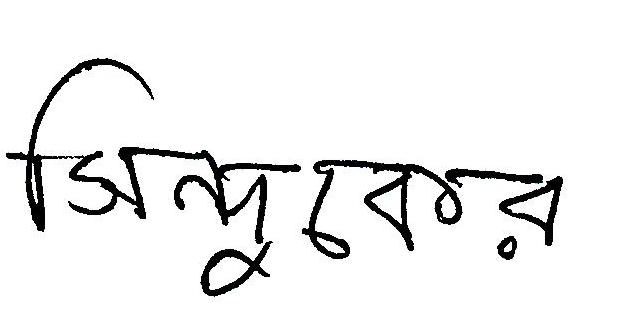 সিন্দুকের